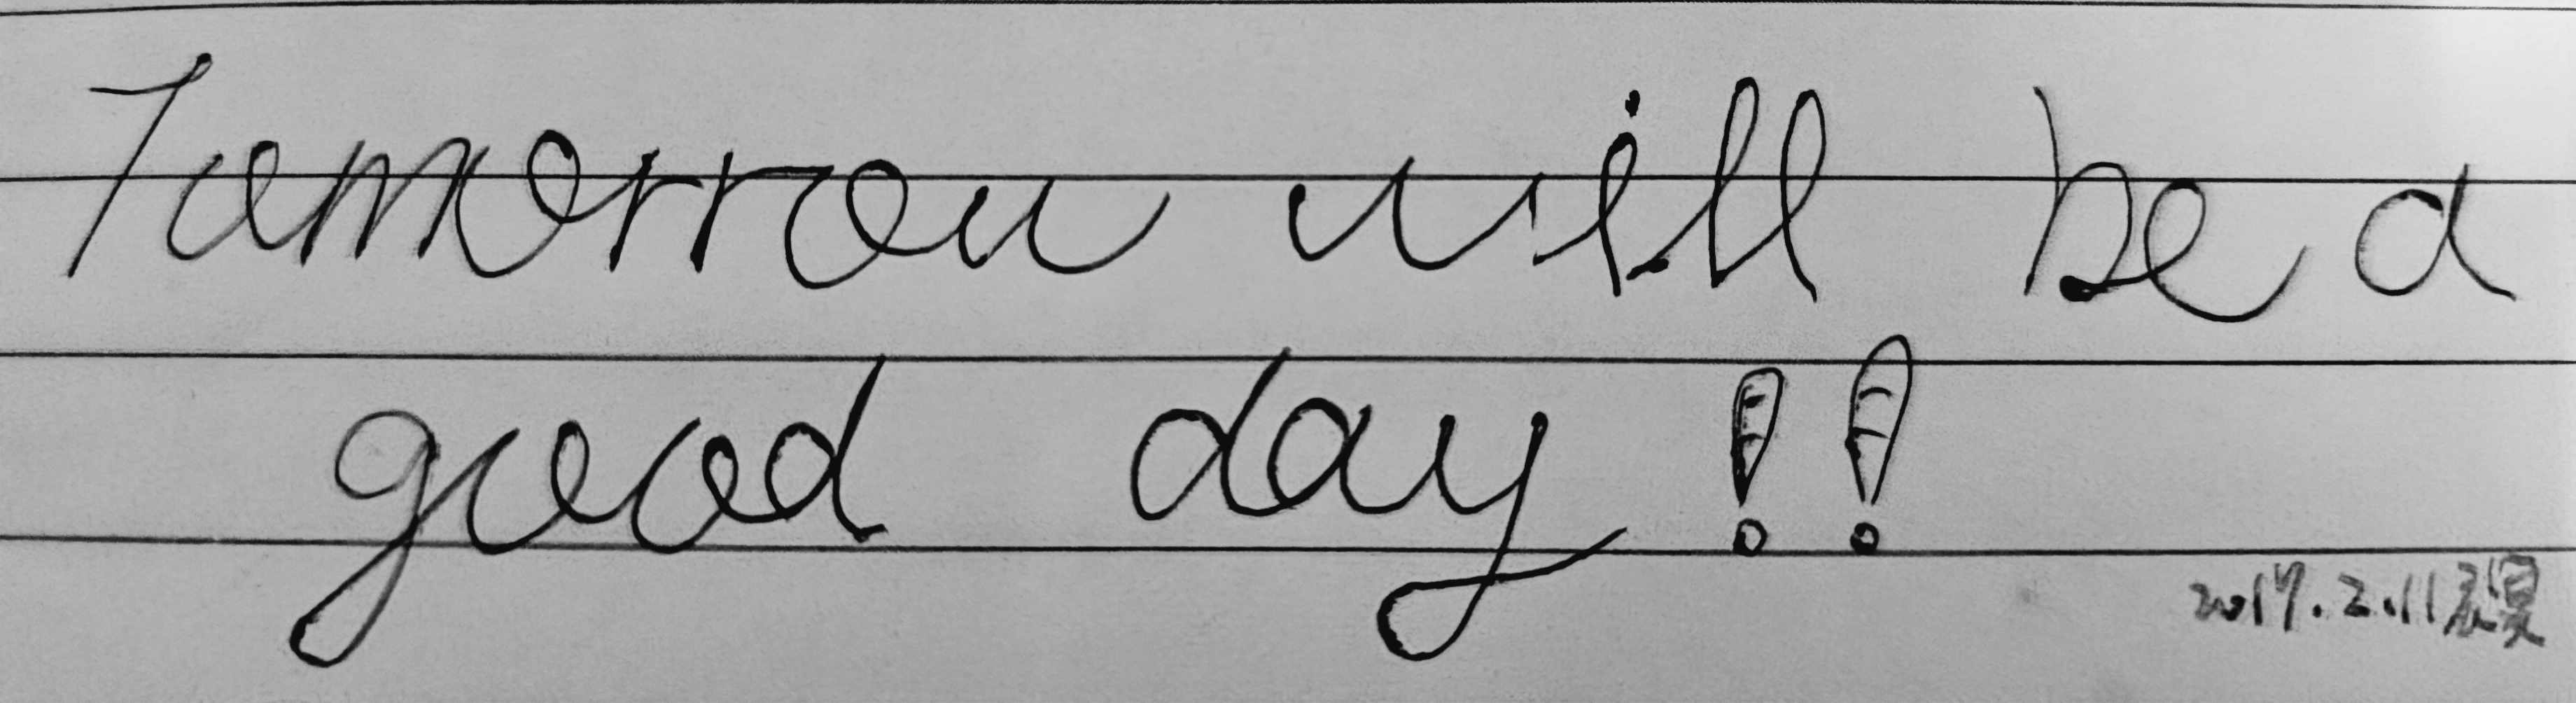 Tomorrow will be a
good day!!
2017.2.11